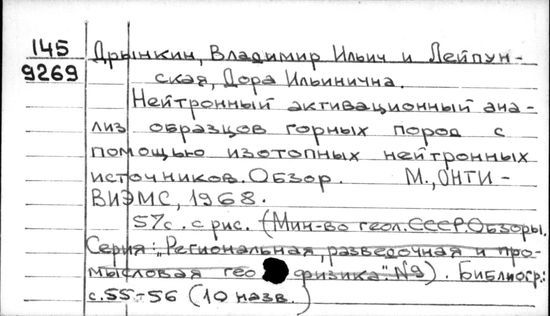 145
9269
Дрынкин, Владимир Ильич и Лейпун-
ская, Дора Ильинична.
Нейтронный активационный ана-
лиз образцов горных пород с
помощью изотопных нейтронных
источников. Обзор. М., ОНТИ-
ВИЭМС, 1968.
57с. с рис. (Мин-во геол. СССР. Обзоры.
Серия: „Региональная, разведочная и про-
мысловая гео физика". №9). Библиогр:
с.55-56 (10 назв.)